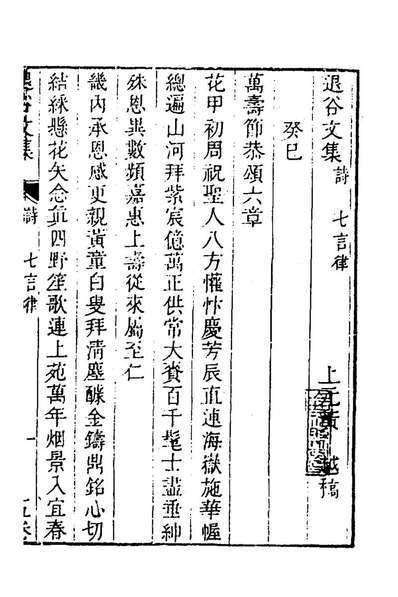 退谷文集 詩 七言律 上元黃 越稿
癸巳
萬壽節恭頌六章
花甲初周祝聖人八方懽忭慶芳辰直連海嶽施華幄
總遍山河拜紫宸億萬正供常大賚百千髦士盡垂紳
殊恩異數頻嘉惠上壽從來屬至仁
畿內承恩感更親黃童白叟拜清塵醵金鑄鼎銘心切
結綵懸花矢念眞四野笙歌連上苑萬年烟景入宜春
退谷文集 詩 七言律 一